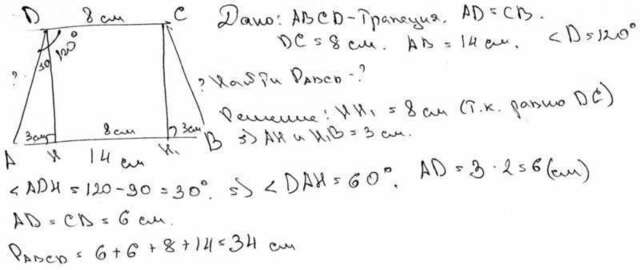 D 8 см C
Дано: ABCD - Трапеция. AD = CB.
DC = 8 см. AB = 14 см. <D = 120°
30 120°
? ? Найти PABCD - ?
Решение: HH₁ = 8 см (т.к. равно DC)
3см 8см 3см => AH и H₁B = 3 см.
A H H₁ B
14 см
<ADH = 120 - 90 = 30°. => <DAH = 60°. AD = 3 · 2 = 6 (см)
AD = CD = 6 см.
PABCD = 6 + 6 + 8 + 14 = 34 см